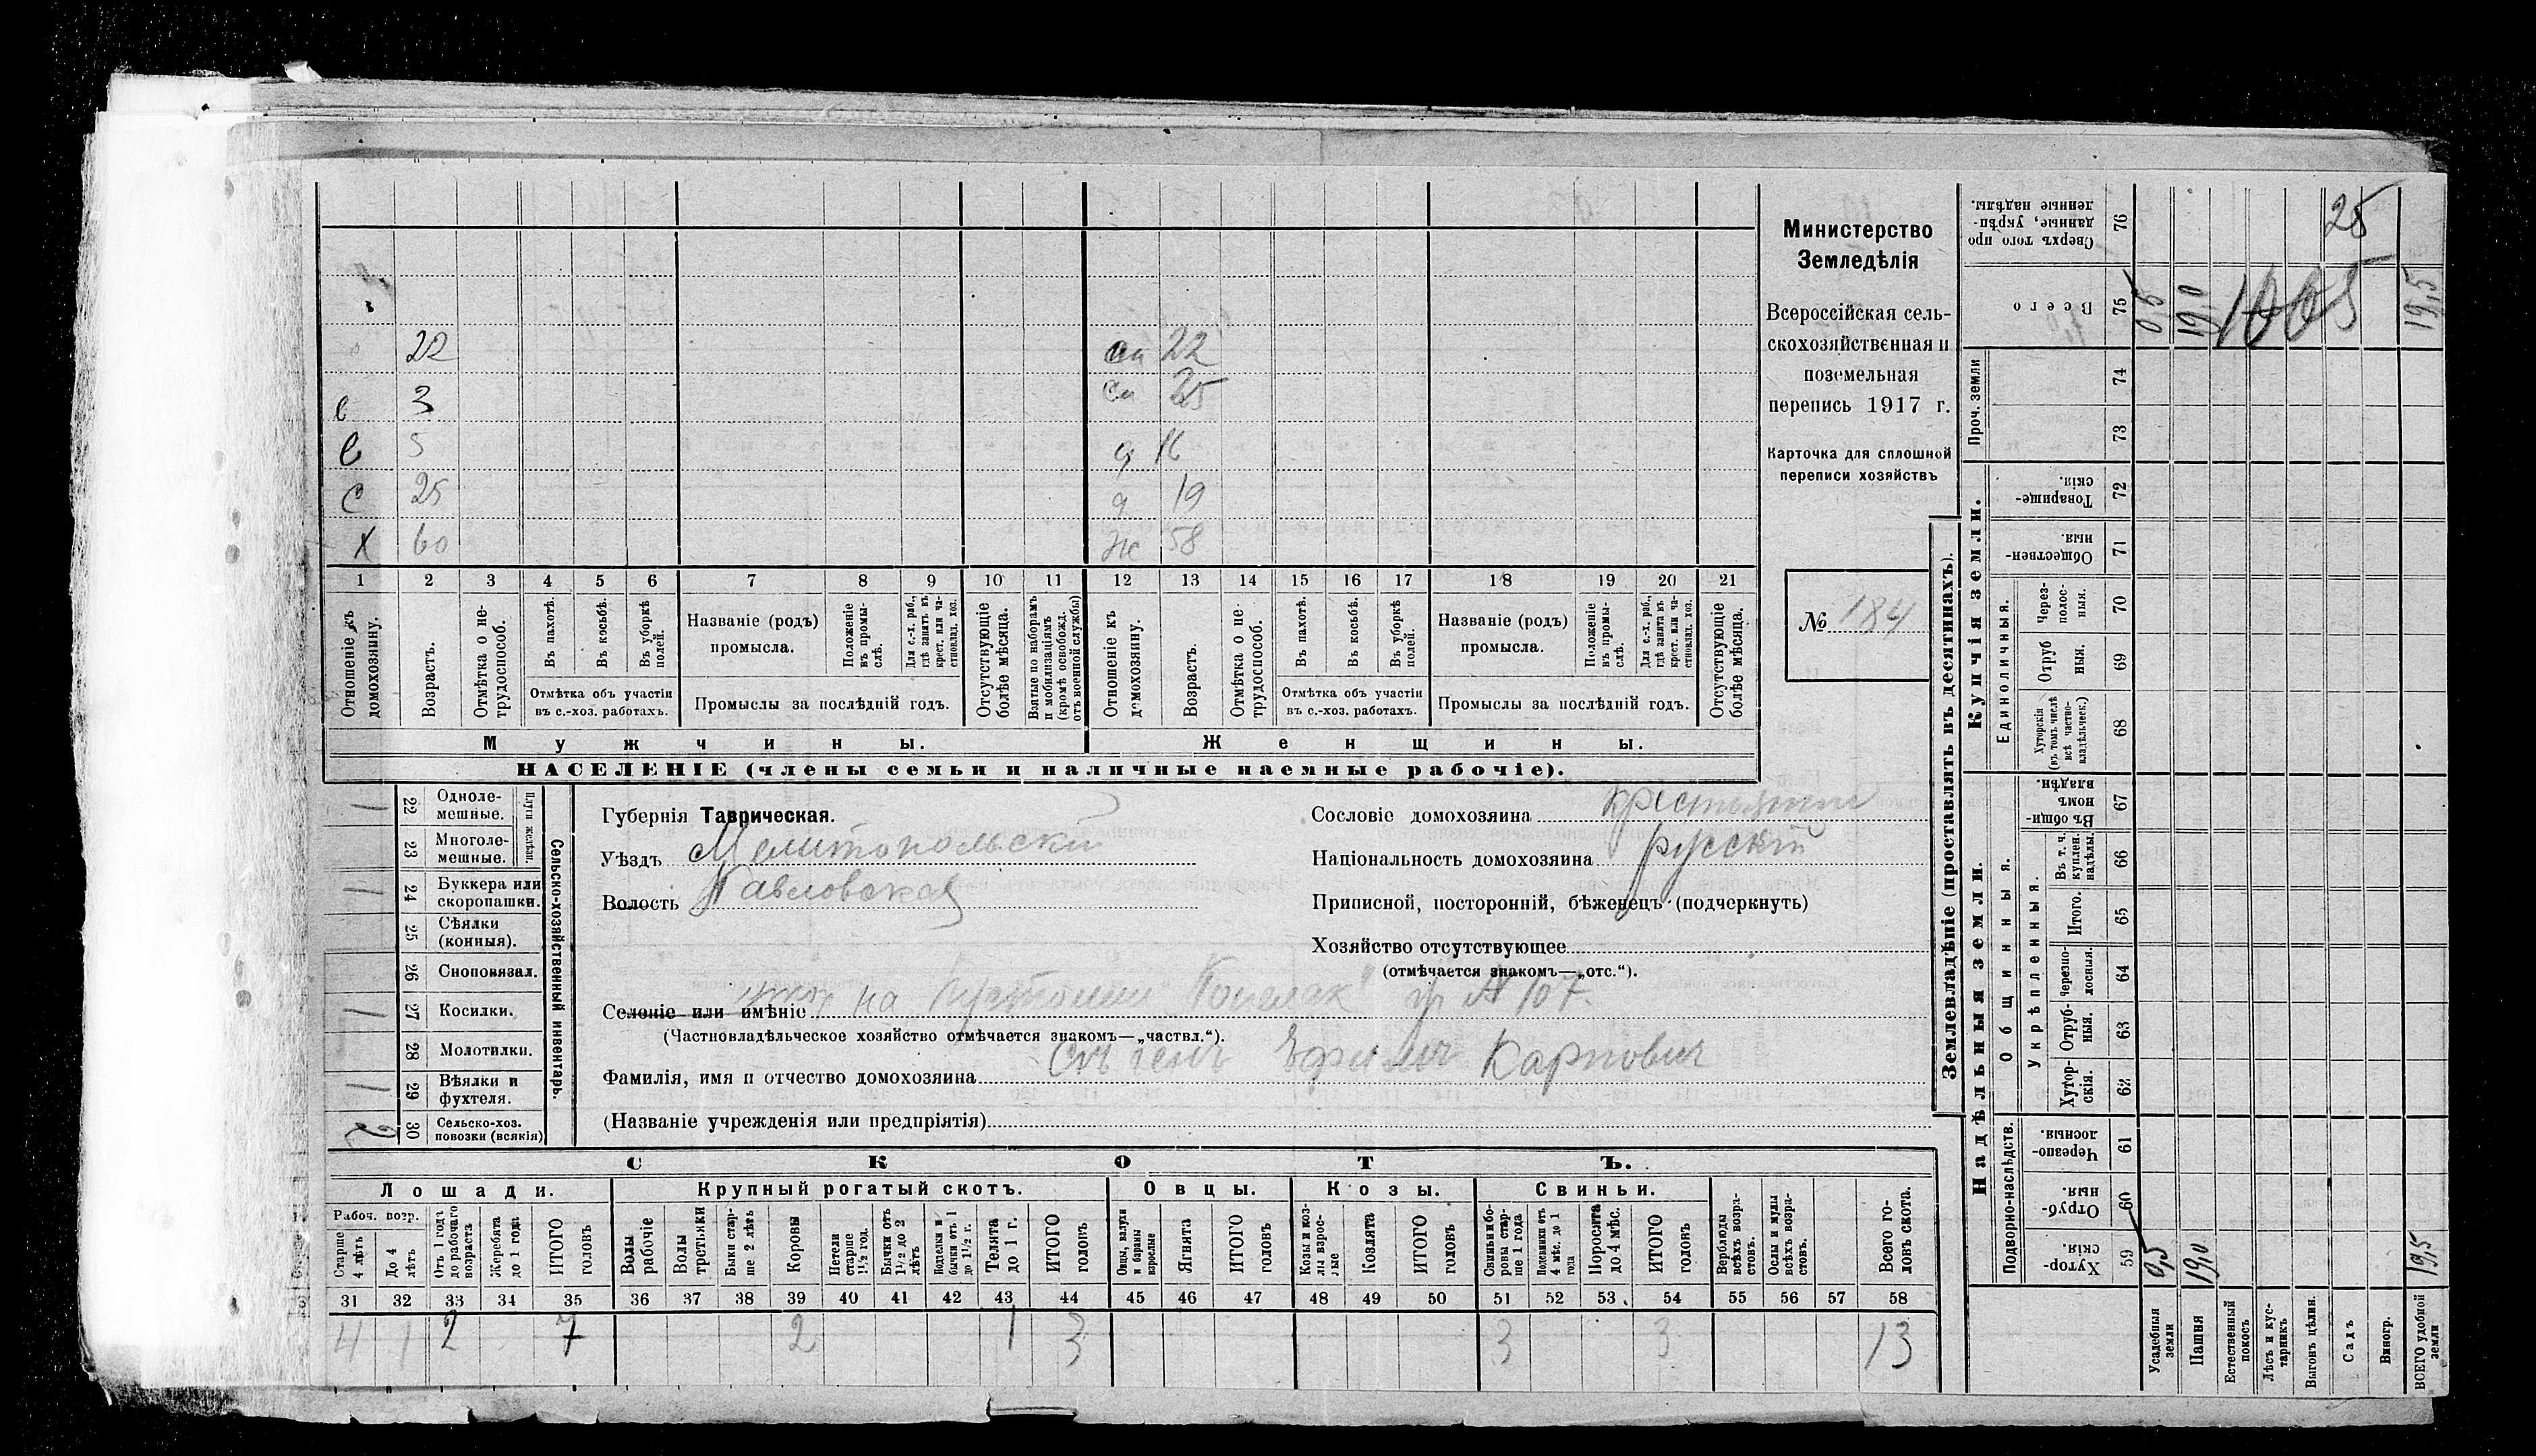 22 са 22
в 3 са 25
в 5 д 16
с 25 д 19
х 60 ж 58
1 2 3 4 5 6 7 8 9 10 11 12 13 14 15 16 17 18 19 20 21
Отношеніе къ домохозяину.
Возрастъ.
Отмѣтка о не-трудоспособ.
Въ пахотѣ.
Въ косьбѣ.
Въ уборкѣ полей.
Отмѣтка объ участіи въ с.-хоз. работахъ.
Названіе (родъ) промысла.
Положеніе въ промы-слѣ.
Для с.-х. раб., гдѣ занятъ въ крест. или ча-стновлад. хоз.
Промыслы за послѣдній годъ.
Отсутствующіе болѣе мѣсяца.
Взятые по наборамъ и мобилизаціямъ (кромѣ освобожд. отъ военной службы)
Отношеніе къ домохозяину.
Возрастъ.
Отмѣтка о не-трудоспособ.
Въ пахотѣ.
Въ косьбѣ.
Въ уборкѣ полей.
Отмѣтка объ участіи въ с.-хоз. работахъ.
Названіе (родъ) промысла.
Положеніе въ промы-слѣ.
Для с.-х. раб., гдѣ занята въ крест. или ча-стновлад. хоз.
Промыслы за послѣдній годъ.
Отсутствующіе болѣе мѣсяца.
Мужчины. Женщины.
НАСЕЛЕНІЕ (члены семьи и наличные наемные рабочіе).
Министерство
Земледѣлія
Всероссійская сель-
скохозяйственная и
поземельная
перепись 1917 г.
Карточка для сплошной
переписи хозяйствъ
№ 184
Сельско-хозяйственный инвентарь.
Плуги желѣзн.
22 Однолемешные. 1
23 Многолемешные.
24 Буккера или скоропашки. 1
25 Сѣялки (конныя).
26 Сноповязал.
27 Косилки. 1
28 Молотилки.
29 Вѣялки и фухтеля. 1
30 Сельско-хоз. повозки (всякія) 2
Губернія Таврическая.
Уѣздъ Мелитопольскій
Волость Павловская
Сословіе домохозяина крестьянин
Національность домохозяина русскій
Приписной, посторонній, бѣженецъ (подчеркнуть)
Хозяйство отсутствующее
(отмѣчается знакомъ—„отс.“).
Селеніе или имѣніе на № 107.
(Частновладѣльческое хозяйство отмѣчается знакомъ—„частвл.“).
Фамилія, имя и отчество домохозяина Ефимъ Карпович
(Названіе учрежденія или предпріятія)
СКОТЪ.
Лошади. Крупный рогатый скотъ. Овцы. Козы. Свиньи.
Рабоч. возр.
Старше 4 лѣтъ
До 4 лѣтъ
Отъ 1 года до рабочаго возраста
Жеребята до 1 года
ИТОГО головъ
Волы рабочіе
Волы третьяки
Быки стар-ше 2 лѣтъ
Коровы
Нетели старше 1½ год.
Бычки отъ 1½ до 2 лѣтъ
Подтелки и бычки отъ 1 до 1½ г.
Телята до 1 г.
ИТОГО головъ
Овцы, валухи и бараны взрослые
Ягнята
ИТОГО головъ
Козы и коз-лы взрос-лые
Козлята
ИТОГО головъ
Свиньи и бо-ровы стар-ше 1 года
Подсвинки отъ 4 мѣс. до 1 года
Поросята до 4 мѣс.
ИТОГО головъ
Верблюды всѣхъ возра-стовъ.
Ослы и мулы всѣхъ возра-стовъ.
Всего го-ловъ скота.
31 32 33 34 35 36 37 38 39 40 41 42 43 44 45 46 47 48 49 50 51 52 53 54 55 56 57 58
4 1 2 7 2 1 3 3 3 13
Землевладѣніе (проставлять въ десятинахъ).
Надѣльныя земли. Купчія земли. Проч. земли
Подворно-наслѣдств.
Общинныя.
Укрѣпленныя.
Единоличныя.
59 Хутор-скія.
60 Отруб-ныя.
61 Черезпо-лосныя.
62 Хутор-скія.
63 Отруб-ныя.
64 Черезпо-лосныя.
65 Итого.
66 Въ т. ч. куплен. надѣлы.
67 Въ общи-номъ владѣн.
68 Хуторскія (въ томъ числѣ всѣ частно-владѣльческ.)
69 Отруб ныя.
70 Через-полос-ныя.
71 Обществен-ныя.
72 Товарище-скія.
73
74
75 Всего
76 Сверхъ того про данные, укрѣп-ленные надѣлы.
Усадебныя земли 0,5 0,5
Пашня 19,0 19,0
Естественный покосъ
Лѣсъ и кус-тарникъ
Выгонъ цѣлин.
Садъ
Виногр.
ВСЕГО удобной земли 19,5 19,5
25
1005